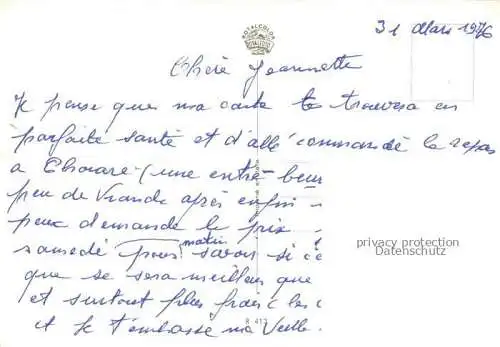 31 Mars 1976
ROYALCOLOR
Chère Jeannette
Je pense que ma carte te trouvera en
parfaite santé et d'allé commandé le repas
a Chouare - (une entré - beur
peu de viande après enfin
peux demande le prix
samedé matin pour savoir si ce
que se sera meilleur que
et surtout plus frais les c
et Je t'embasse ma Veille.
R. 413
privacy protection
Datenschutz